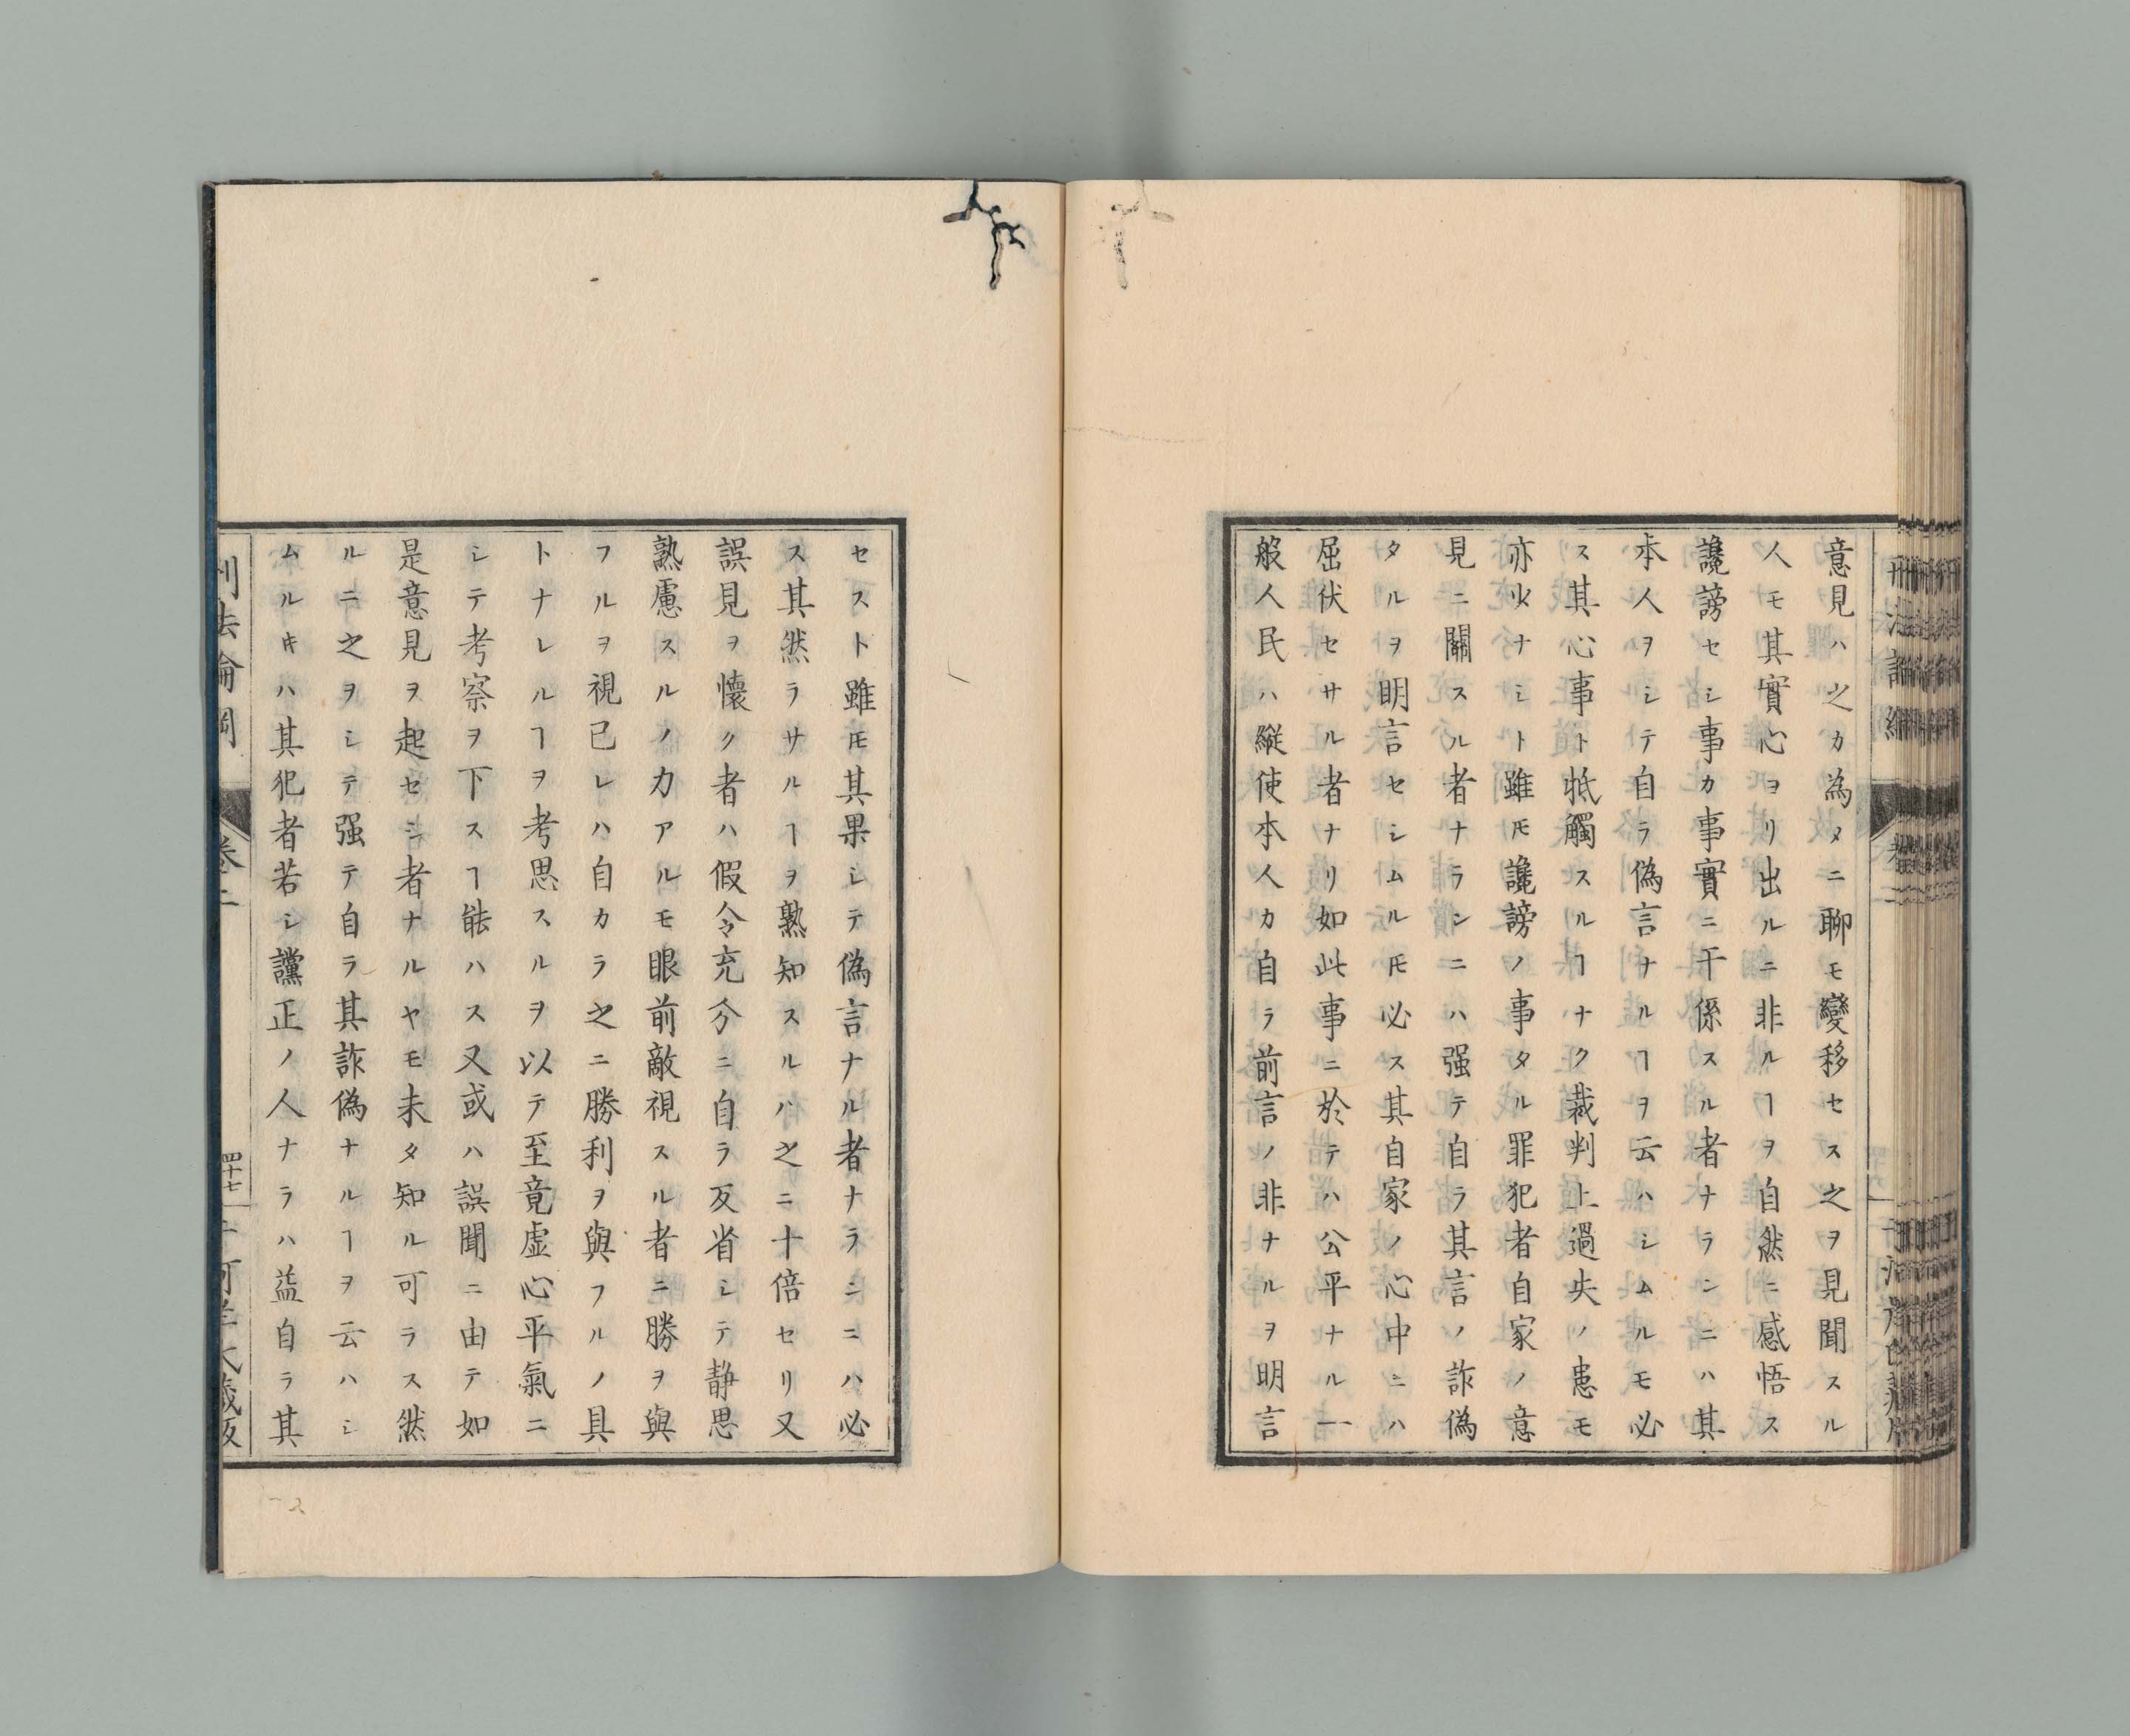 意見ハ之カ為メニ聊モ變移セス之ヲ見聞スル
人モ其實心ヨリ出ルニ非ルヿヲ自然ニ感悟ス
讒謗セシ事カ事實ニ干係スル者ナランニハ其
本人ヲシテ自ラ偽言ナルヿヲ云ハシムルモ必
ス其心事ト牴觸スルヿナク裁判上過失ノ患モ
亦少ナシト雖𪜈讒謗ノ事タル罪犯者自家ノ意
見ニ關スル者ナランニハ强テ自ラ其言ノ詐偽
タルヲ明言セシムル𪜈必ス其自家ノ心中ニハ
屈伏セサル者ナリ如此事ニ於テハ公平ナル一
般人民ハ縦使本人カ自ラ前言ノ非ナルヲ明言
セスト雖𪜈其果シテ偽言ナル者ナランニハ必
ス其然ラサルヿヲ熟知スルハ之ニ十倍セリ又
誤見ヲ懷ク者ハ假令充分ニ自ラ反省シテ静思
熟慮スルノ力アルモ眼前敵視スル者ニ勝ヲ與
フルヲ視已レハ自カラ之ニ勝利ヲ與フルノ具
トナレルヿヲ考思スルヲ以テ至竟虚心平氣ニ
シテ考察ヲ下スヿ能ハス又或ハ誤聞ニ由テ如
是意見ヲ起セシ者ナルヤモ未タ知ル可ラス然
ルニ之ヲシテ强テ自ラ其詐偽ナルヿヲ云ハシ
ムルキハ其犯者若シ讜正ノ人ナラハ益自ラ其
刑法論綱
卷二
四十七